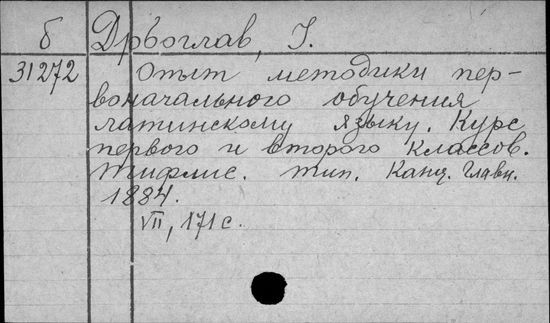 б Дрвоглав, І.
31272 Опыт методики пер-
воначального обучения
латинскому языку. Курс
первого и второго классов.
Тифлис. тип. Канц. Главн.
1884.
VII, 171 с.